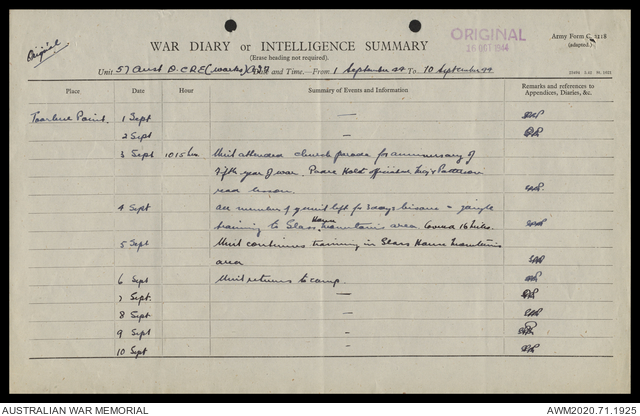 Original
ORIGINAL
26 OCT 1944
Army Form C. 2118
(adapted.)
WAR DIARY or INTELLIGENCE SUMMARY
(Erase heading not required).
Unit 57 Aust D.C.R.E. (Works) A.I.F. Date and Time.—From 1 September 44 To 10 September 44
Place Date Hour Summary of Events and Information Remarks and references to Appendices, Diaries, &c.
1 Sept —
2 Sept —
3 Sept 1015 hrs Unit attended church parade for anniversary of
fifth year of war. Padre Holt officiated Maj Patterson
read lesson.
4 Sept All members of unit left for 3 days bivouac & jungle
training to Glass House Mountains area. Covered 16 miles.
5 Sept Unit continues training in Glass House Mountains
area
6 Sept Unit returns to camp.
7 Sept. —
8 Sept —
9 Sept
10 Sept
AUSTRALIAN WAR MEMORIAL AWM2020.71.1925